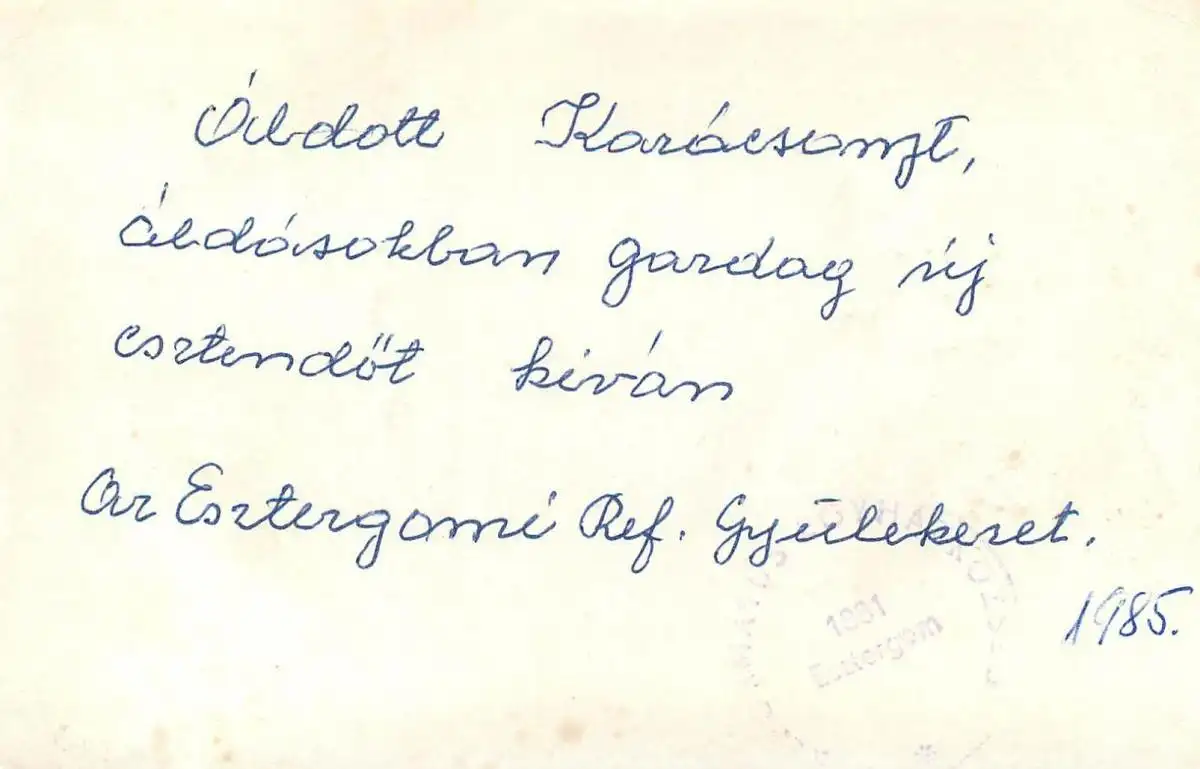 Áldott Karácsonyt,
áldásokban gazdag új
esztendőt kíván
az Esztergomi Ref. Gyülekezet.
1985.
1981
Esztergom